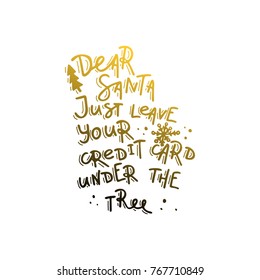 DEAR
SANTA
JUST LEAVE
YOUR
CREDIT CARD
UNDER THE
TREE
shutterstock.com · 767710849